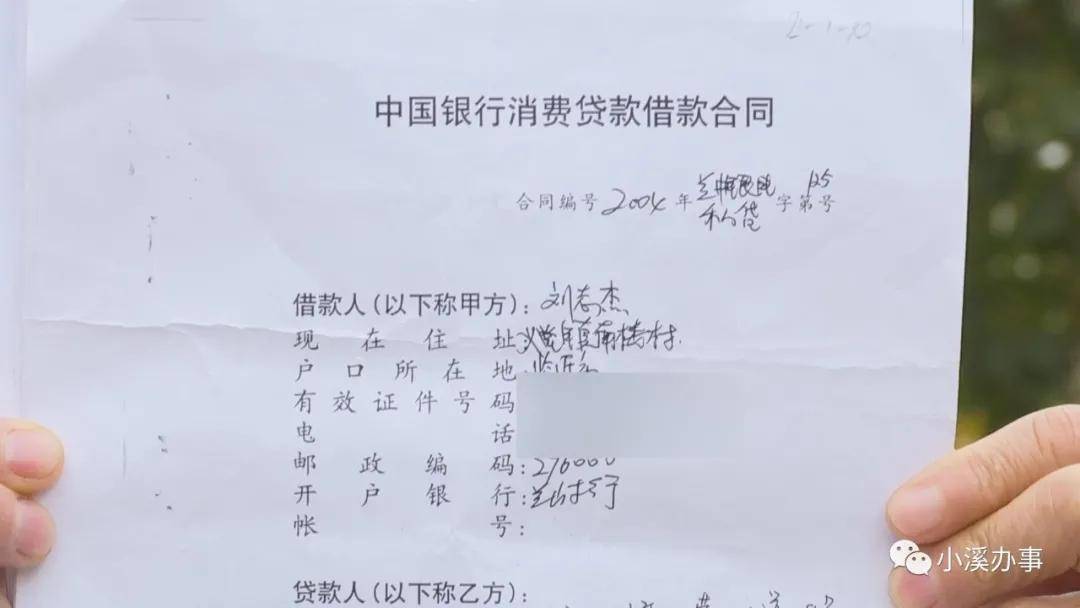 中国银行消费贷款借款合同
合同编号 2004 年 私贷 字第 125 号
借款人(以下称甲方): 刘志杰
现在住址: 镇南楼村.
户口所在地: 临沂
有效证件号码
电话
邮政编码: 276000
开户银行: 兰山支行
帐号:
贷款人(以下称乙方):
小溪办事